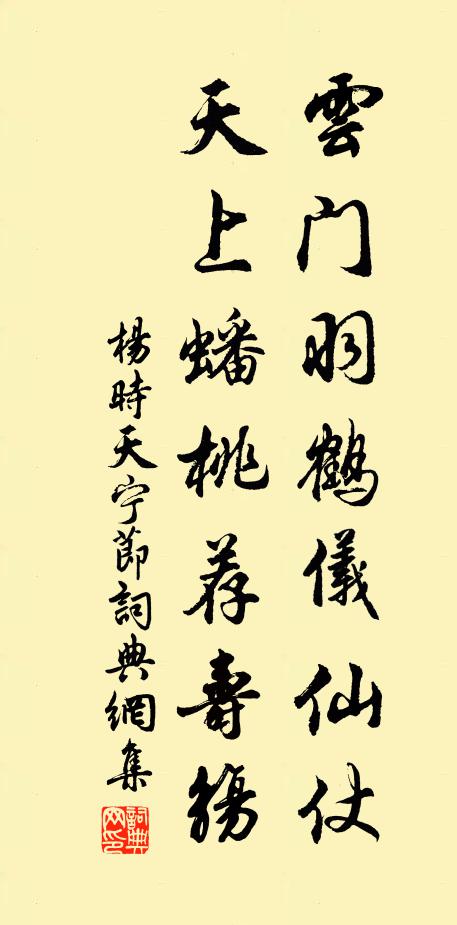 雲门羽鹤儀仙仗
天上蟠桃荐壽觴
楊時天宁節詞典網集
詞典网印